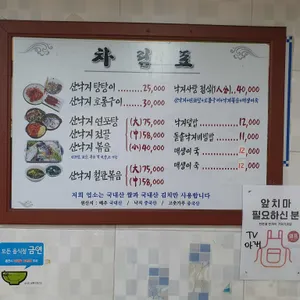 차림표
산낙지 탕탕이 25,000
산낙지 호롱구이 30,000
산낙지 연포탕 (大)75,000
산낙지 초무침 (中)58,000
산낙지 볶음 (小)40,000
산낙지 철판볶음 (大)75,000
(中)58,000
낙지사랑 점심(1人分) 40,000
낙지덮밥 12,000
돌솥낙지비빔밥 11,000
매생이 국 12,000
매생이 죽 12,000
저희 업소는 국내산 쌀과 국내산 김치만 사용합니다
원산지 : 배추 국내산 / 낙지 중국산 / 고춧가루 국산
모든 음식점 금연
앞치마
필요하신 분
TV
아래